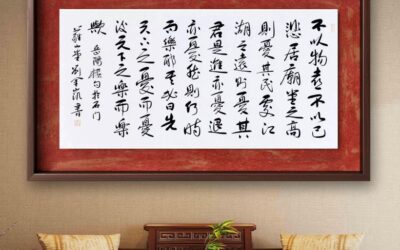 不以物喜不以己
悲居廟堂之高
則憂其民處江
湖之遠則憂其
君是進亦憂退
亦憂然則何時
而樂耶其必曰先
天下之憂而憂
後天下之樂而樂
歟 岳陽樓句於石门
山堂劉金凱書